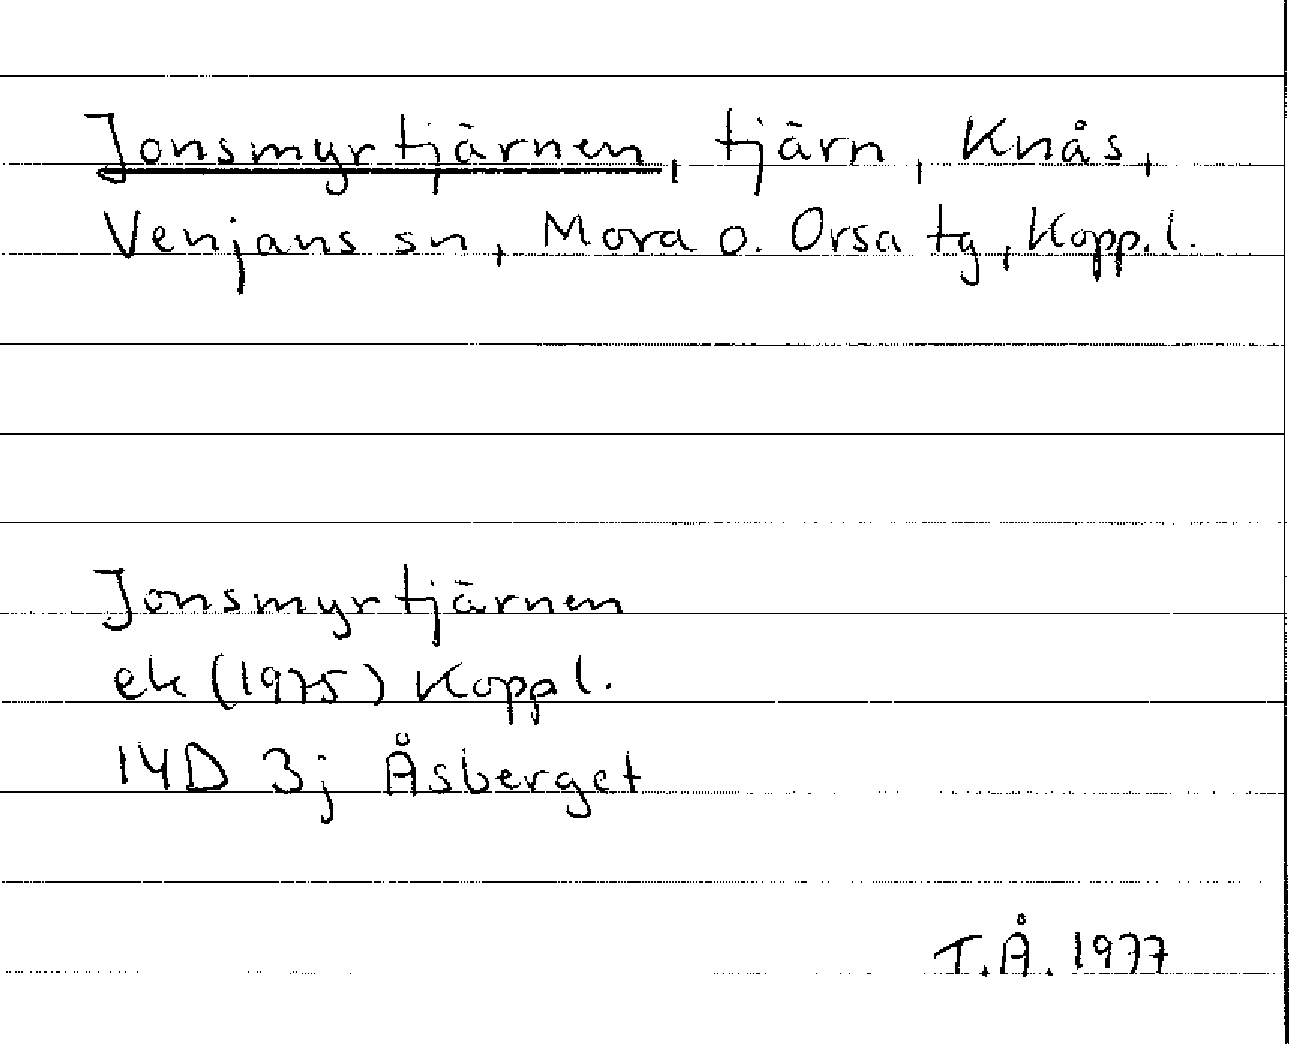 Jonsmyrtjärnen, tjärn, Knås,
Venjans sn, Mora o. Orsa tg, Kopp.l.
Jonsmyrtjärnen
ek (1975) Koppl.
14D 3j Åsberget
T.Å. 1977